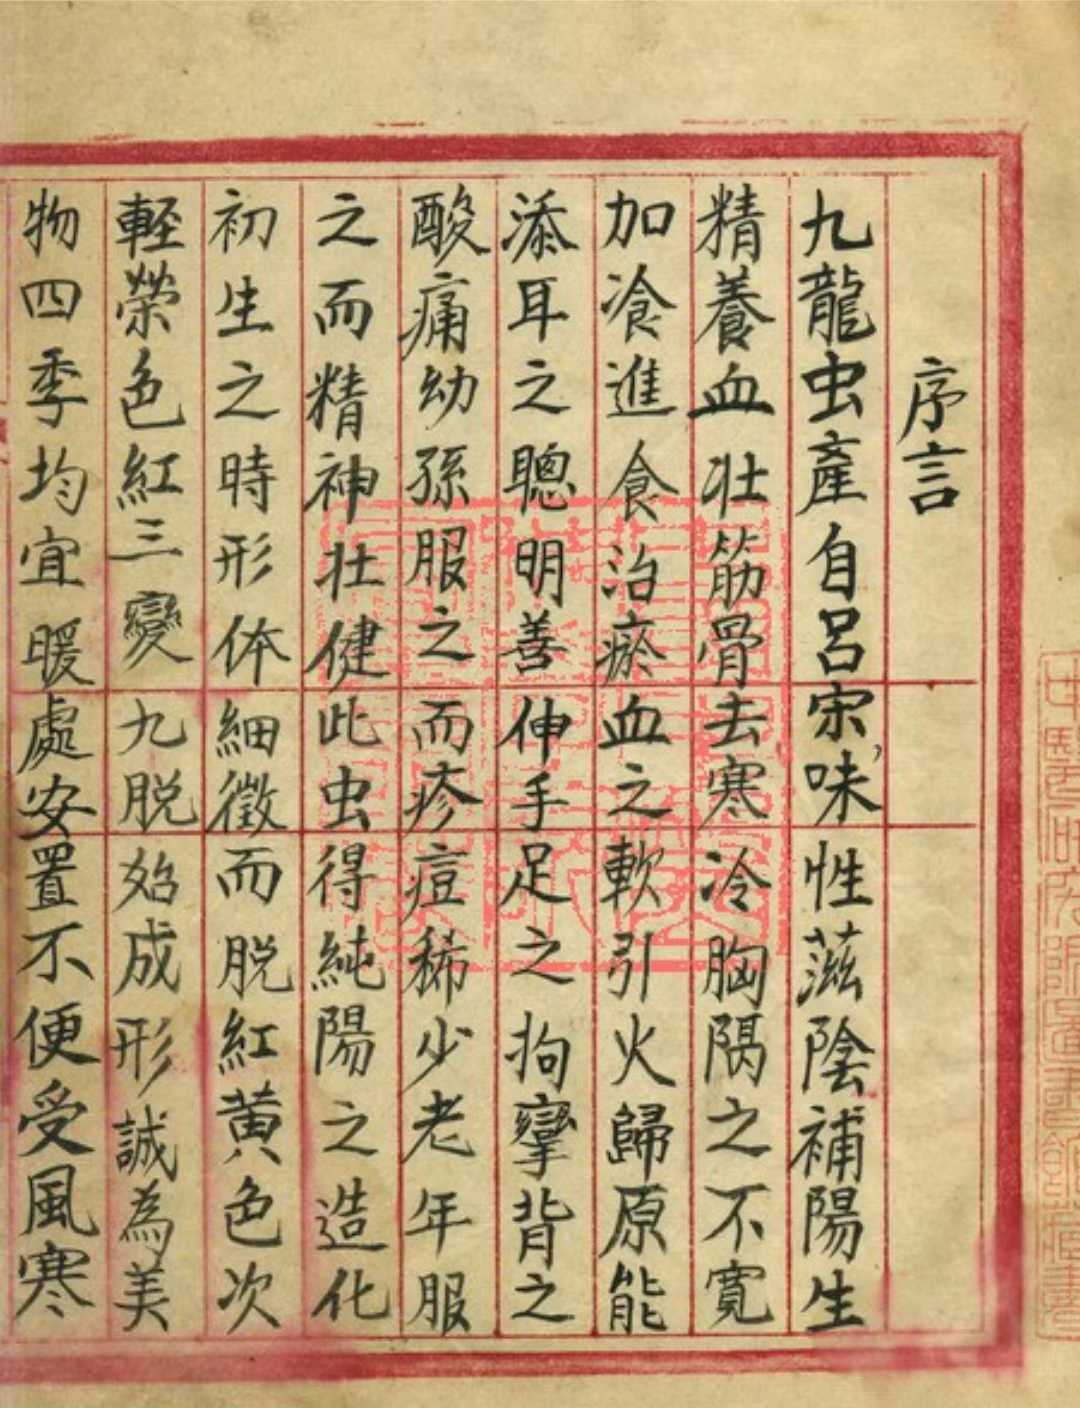 序言
九龍虫產自呂宋,味性滋陰補陽生
精養血壯筋骨去寒冷胸隔之不寬
加飡進食治瘀血之軟引火歸原能
添耳之聰明善伸手足之拘攣背之
酸痛幼孫服之而疹痘稀少老年服
之而精神壯健此虫得純陽之造化
初生之時形体細微而脱紅黄色次
輕榮色紅三變九脱始成形誠為美
物四季均宜暖處安置不便受風寒